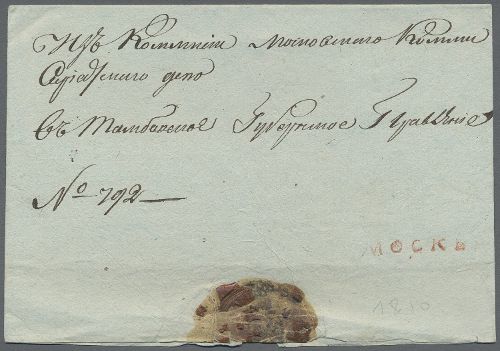 Изъ Комммісіи Московскаго Коммис
Саріатскаго депо
Въ Тамбовское Губернское Правленіе
№ 792
МОСКВ
1810